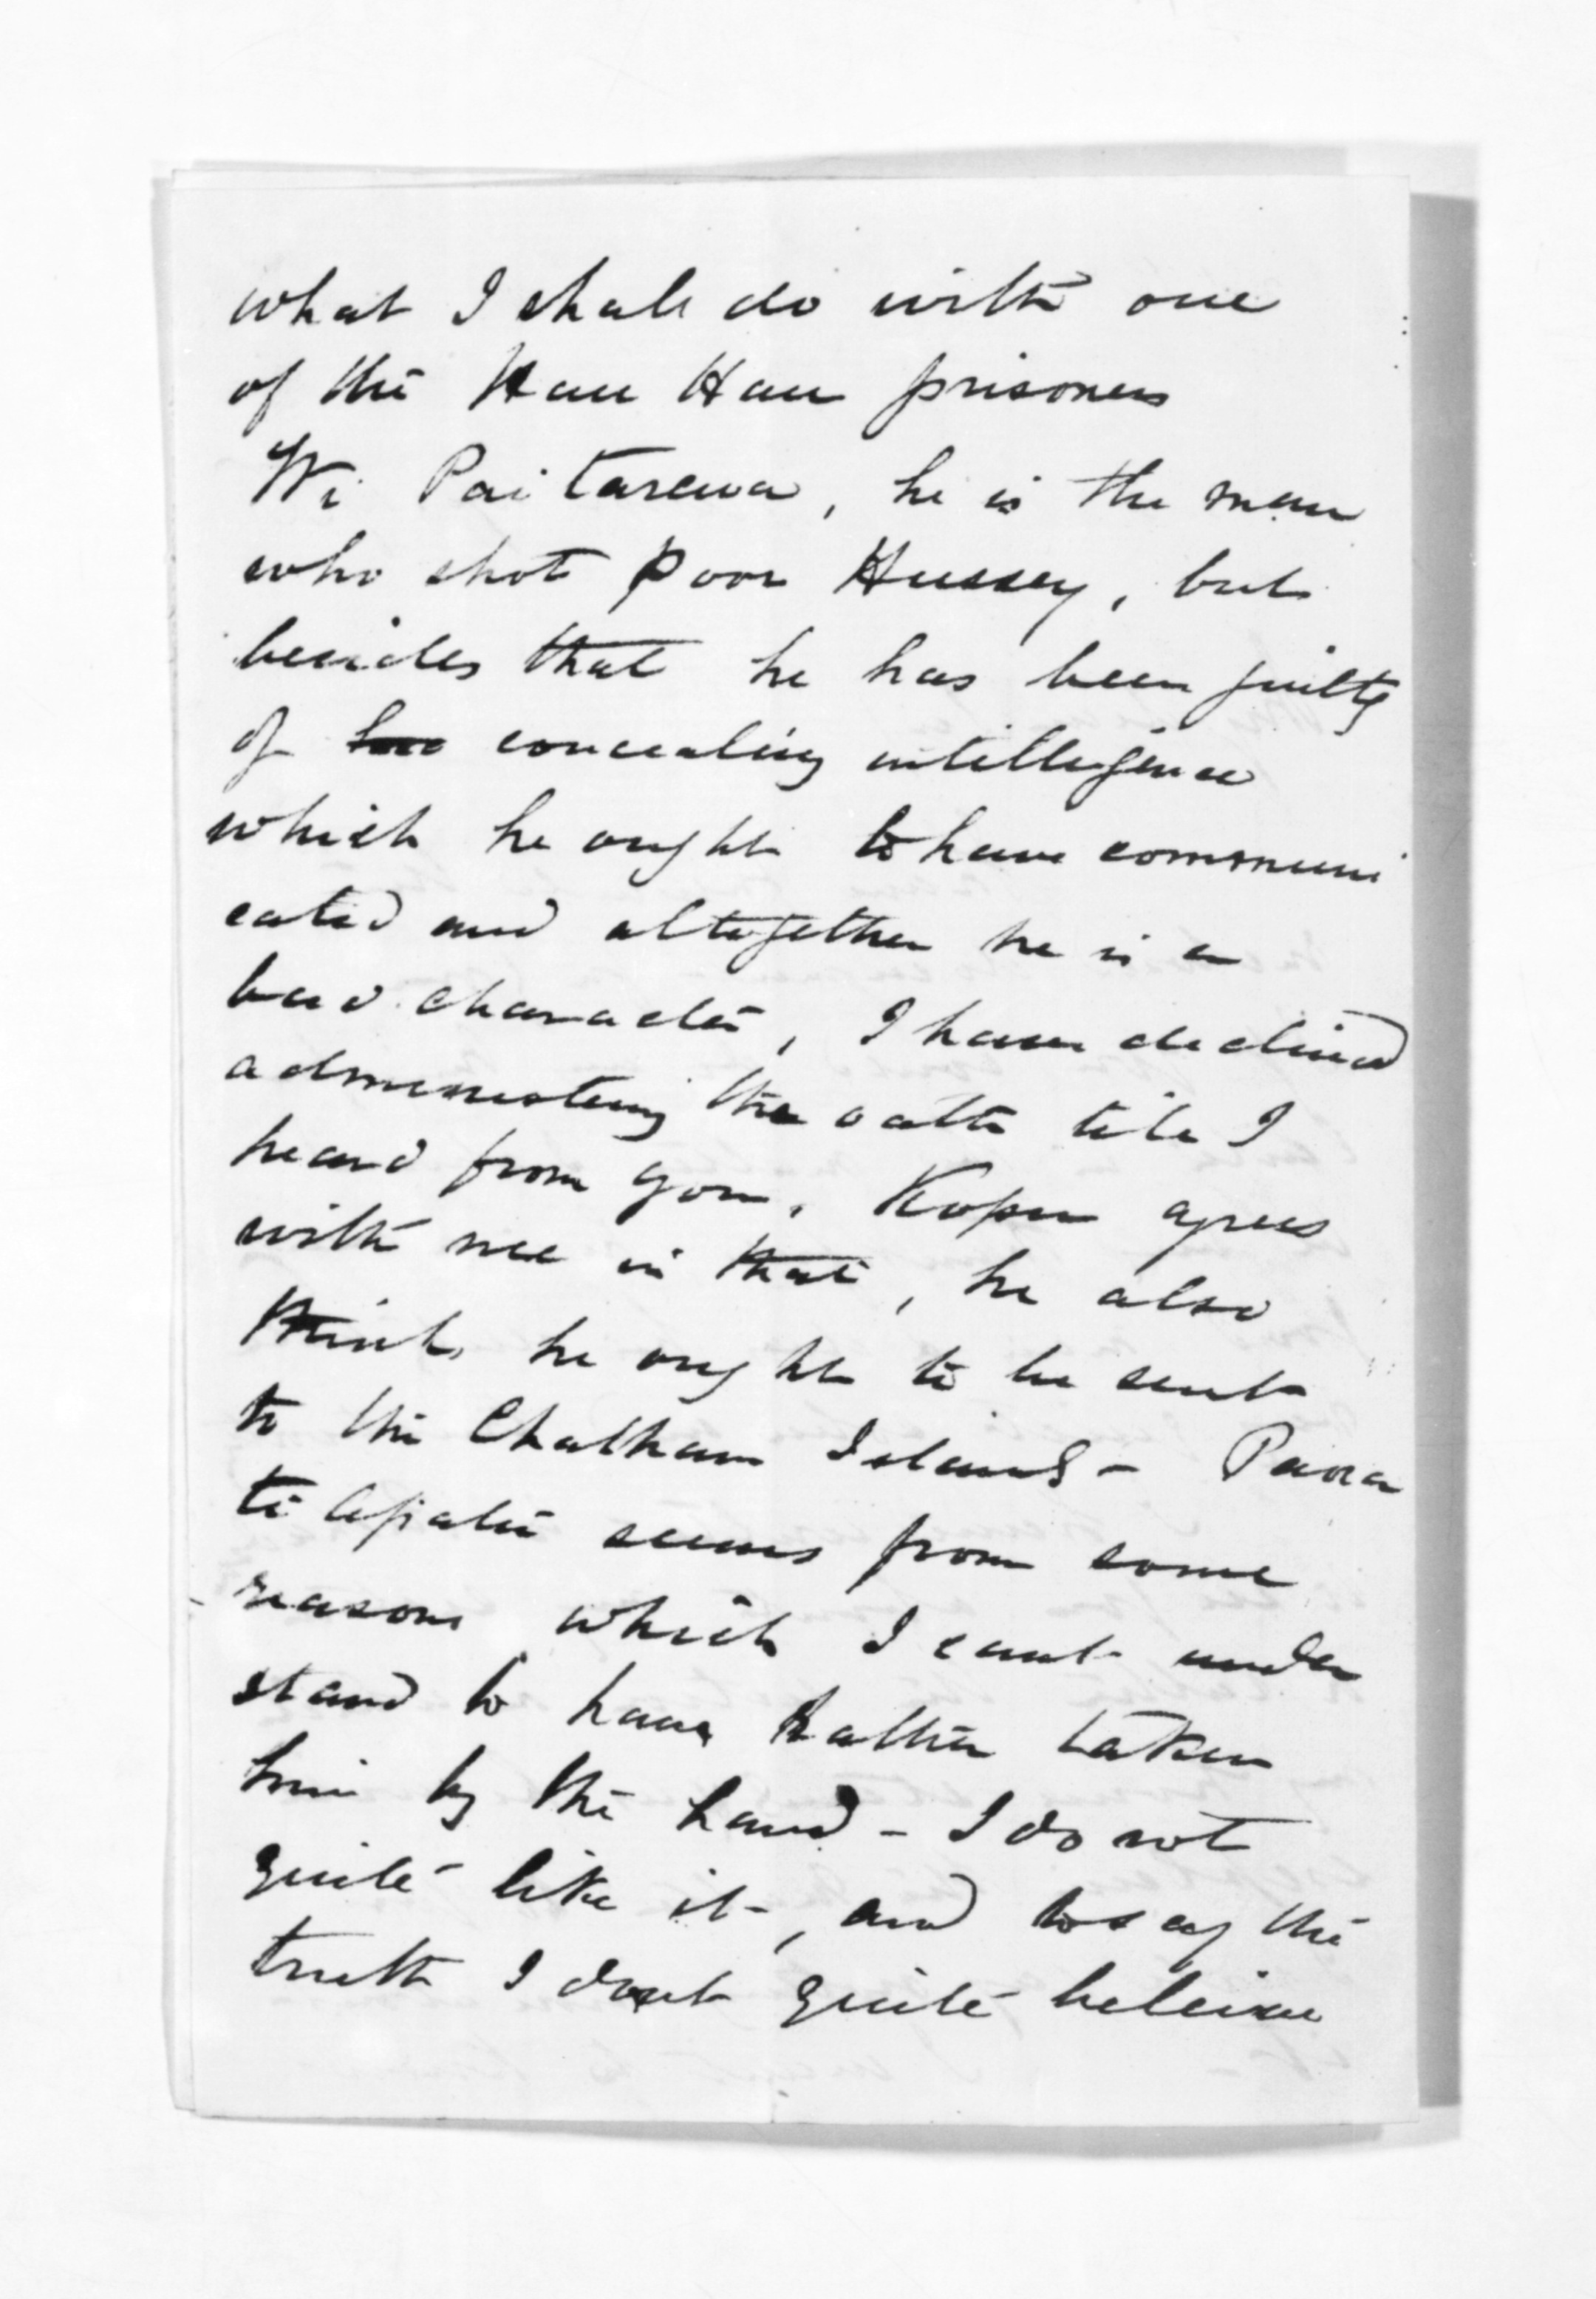 what I shall do with one
of the Hau Hau prisoners
Wi Paitarewa, he is the man
who shot poor Hussey, but
besides that he has been guilty
of concealing intelligence
which he ought to have communi
cated and altogether he is a
bad character, I have declined
administering the oath till I
heard from you. Kopu agrees
with me in that, he also
thinks he ought to be sent
to the Chatham Islands - Paora
te Apatu seems from some
reasons which I cant under
stand to have rather taken
him by the hand - I do not
quite like it -, and to say the
truth I dont quite beleive